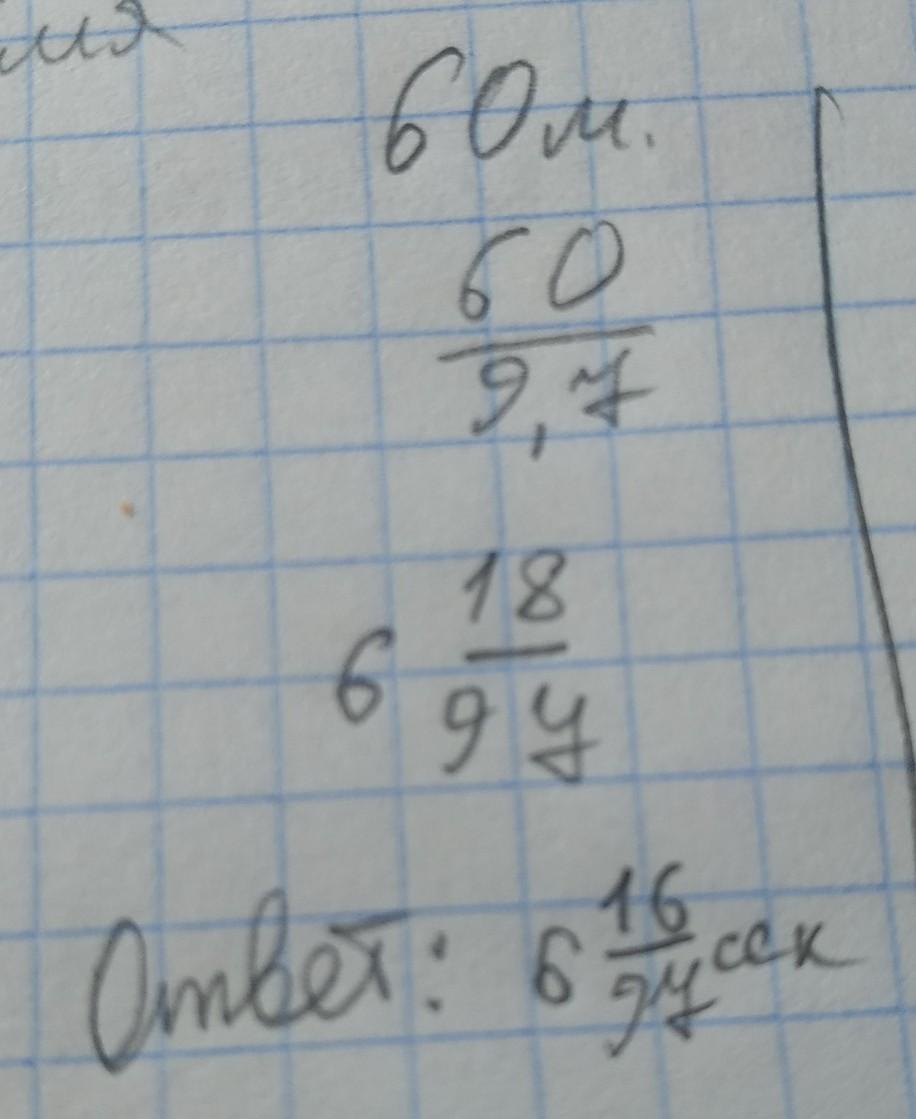 60 м.
60
9,7
6 18
97
Ответ: 6 16/97 сек